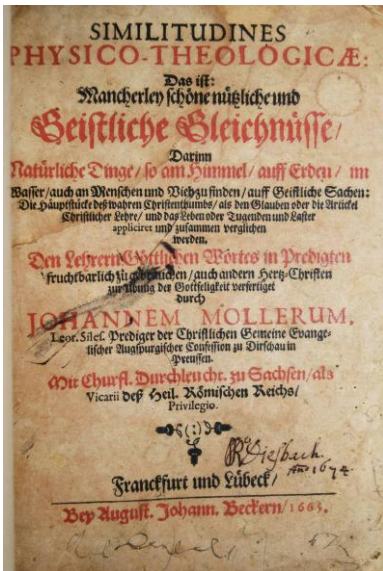 SIMILITUDINES
PHYSICO-THEOLOGICÆ:
Das ist:
Mancherley schöne nützliche und
Geistliche Gleichnüsse/
Darinn
Natürliche Dinge/ so am Himmel/ auff Erden/ im
Wasser/ auch an Menschen und Vieh zu finden/ auff Geistliche Sachen:
Die Häuptstücke deß wahren Christenthumbs/ als den Glauben oder die Artickel
Christlicher Lehre/ und das Leben oder Tugenden und Laster
appliciret und zusammen verglichen
werden.
Den Lehrern Göttlichen Wortes in Predigten
fruchtbarlich zu gebrauchen/ auch andern Hertz-Christen
zur Übung der Gottseligkeit verfertiget
durch
JOHANNEM MOLLERUM,
Leor. Siles. Prediger der Christlichen Gemeine Evange-
lischer Augspurgischer Confession zu Dirschau in
Preussen.
Mit Churfl. Durchleucht. zu Sachsen/ als
Vicarii deß Heil. Römischen Reichs/
Privilegio.
R. Diesbach
Año 1674
Franckfurt und Lübeck/
Bey August. Johann. Beckern/ 1663.